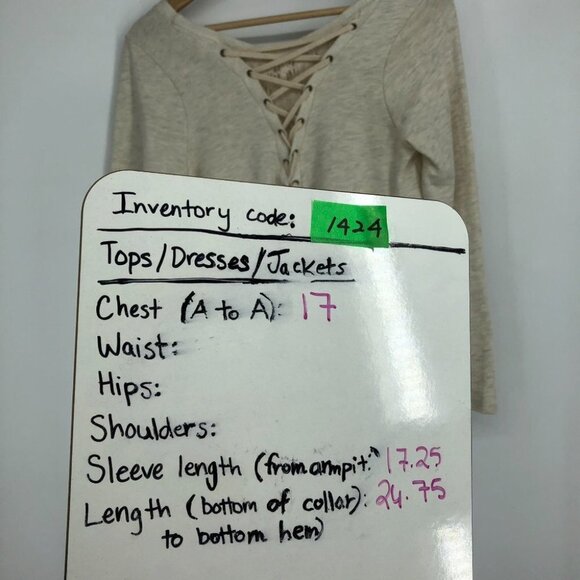 Inventory code: 1424
Tops/Dresses/Jackets
Chest (A to A): 17
Waist:
Hips:
Shoulders:
Sleeve length (from armpit: 17.25
Length (bottom of collar): 24.75
to bottom hem)